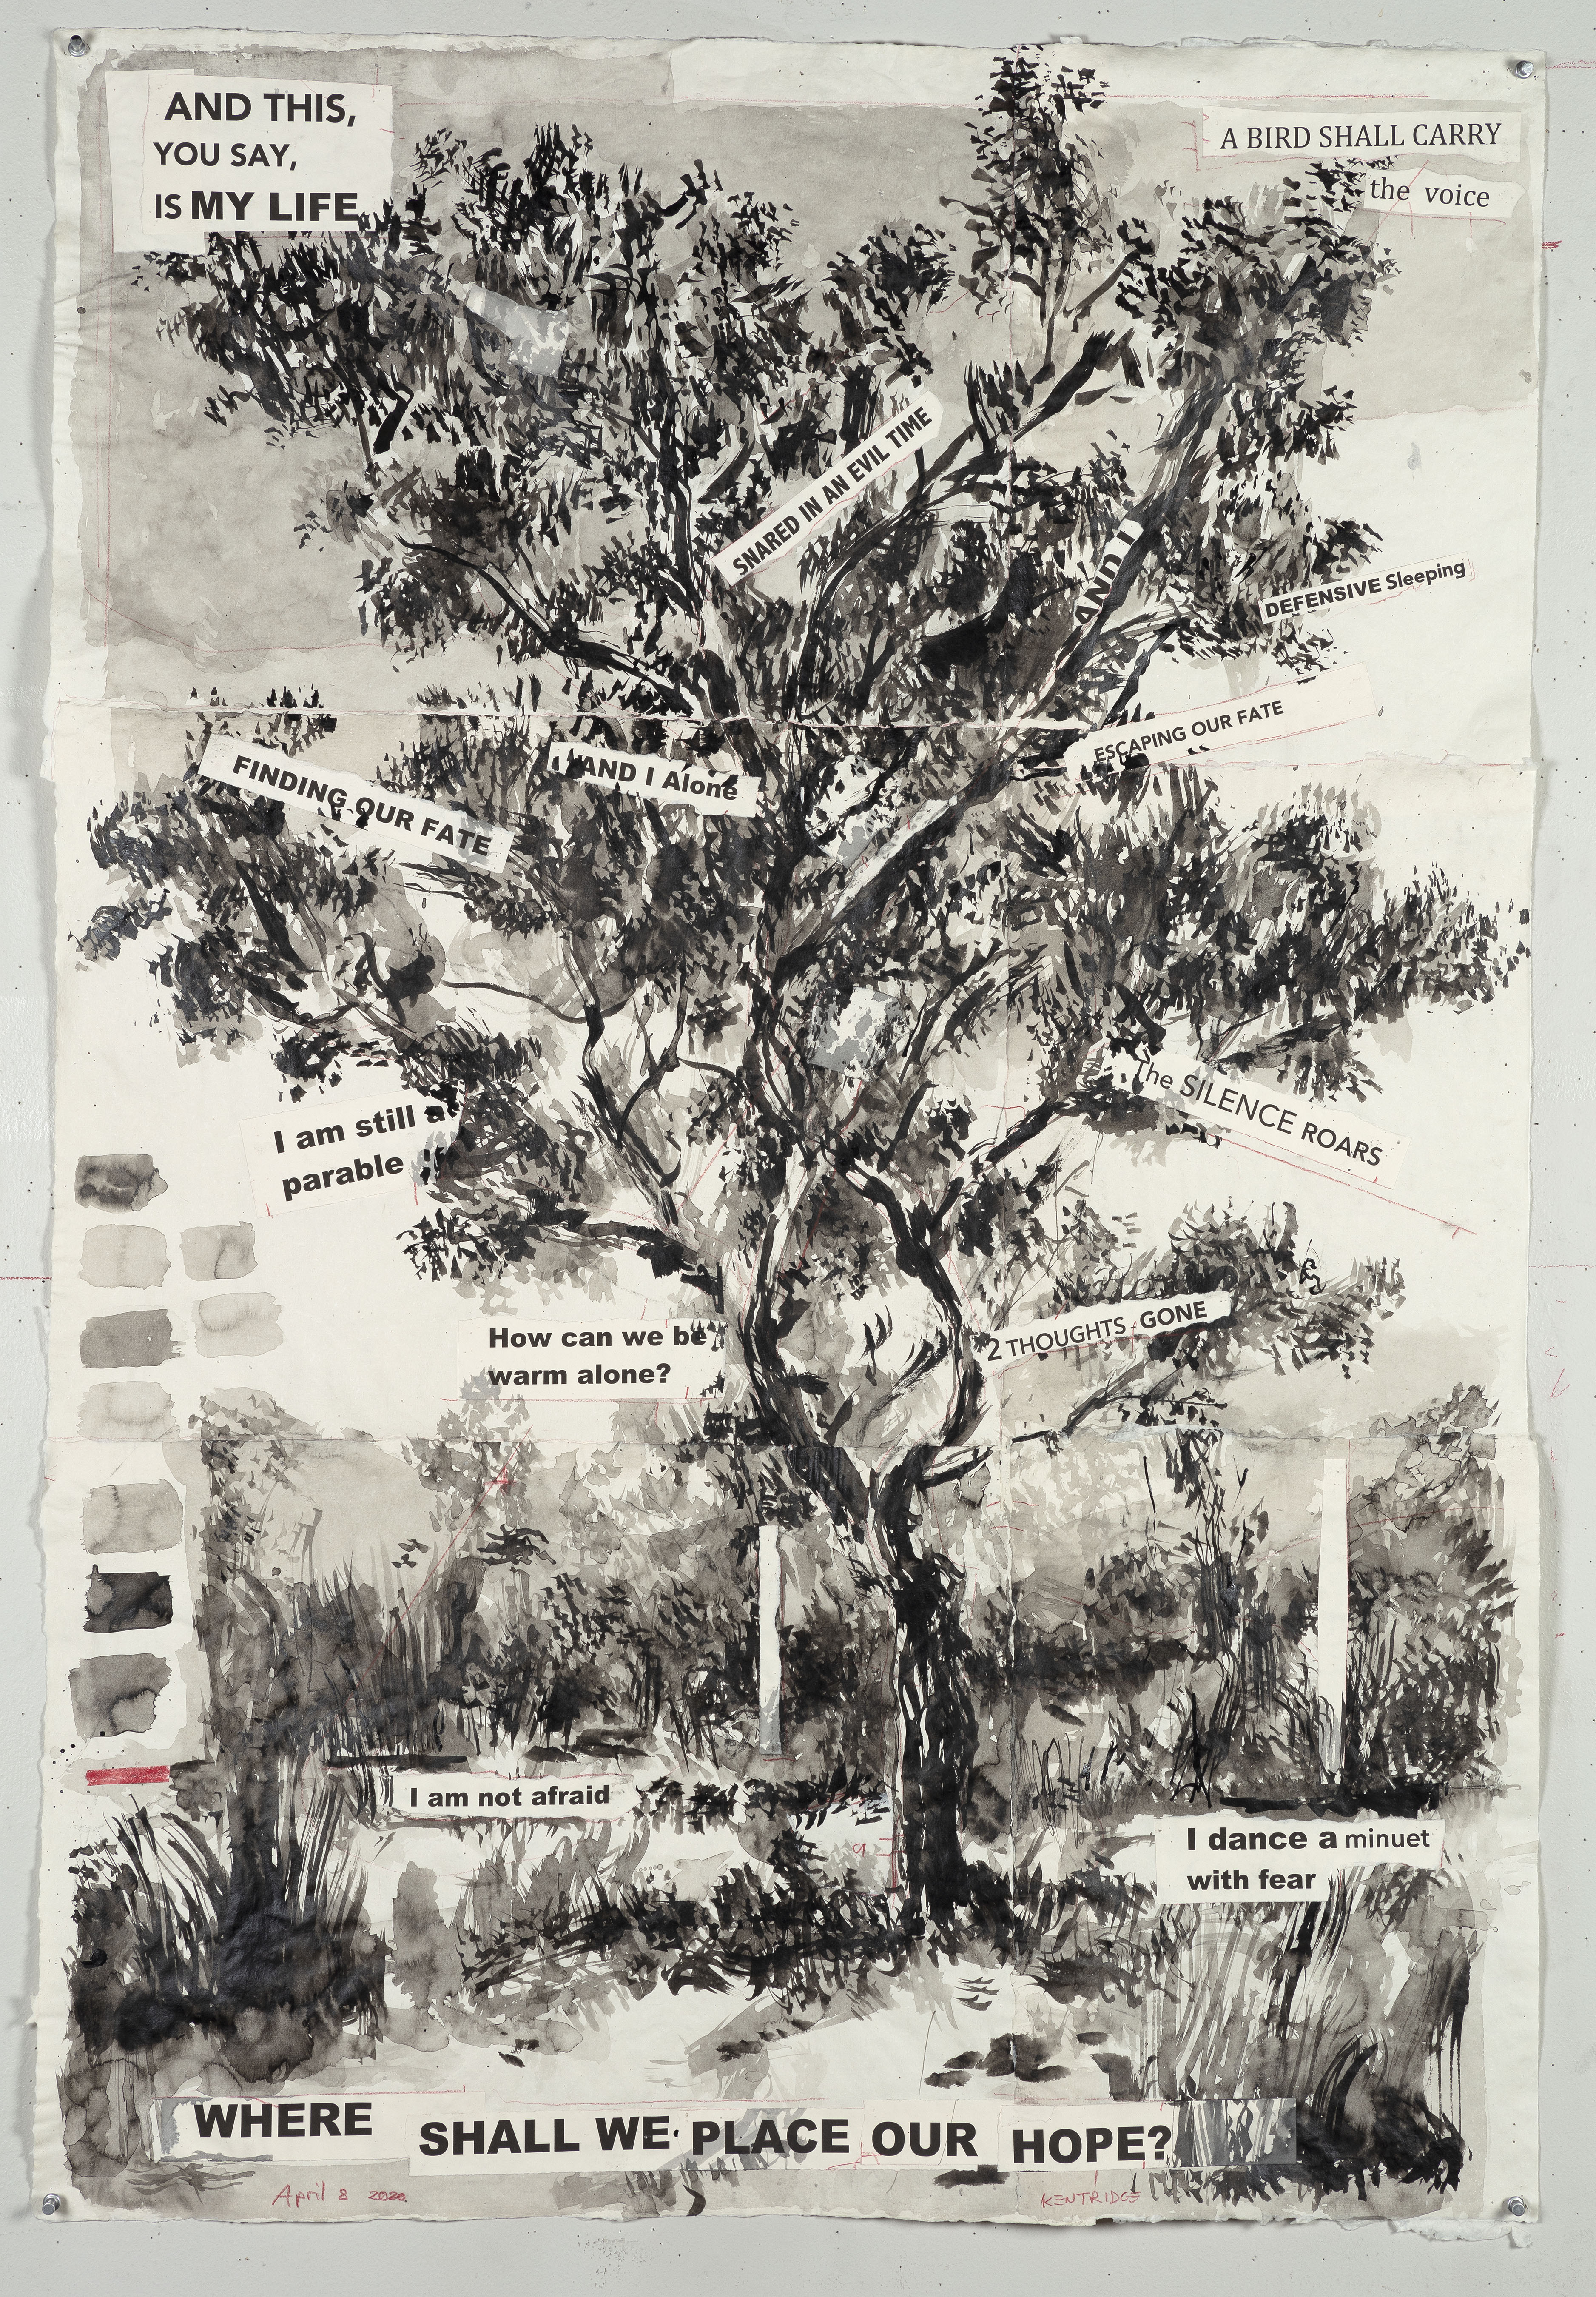 AND THIS,
YOU SAY,
IS MY LIFE
A BIRD SHALL CARRY
the voice
SNARED IN AN EVIL TIME
AND I
DEFENSIVE Sleeping
ESCAPING OUR FATE
FINDING OUR FATE
AND I Alone
I am still a
parable
The SILENCE ROARS
How can we be
warm alone?
2 THOUGHTS GONE
I am not afraid
I dance a minuet
with fear
WHERE SHALL WE PLACE OUR HOPE?
April 8 2020
KENTRIDGE